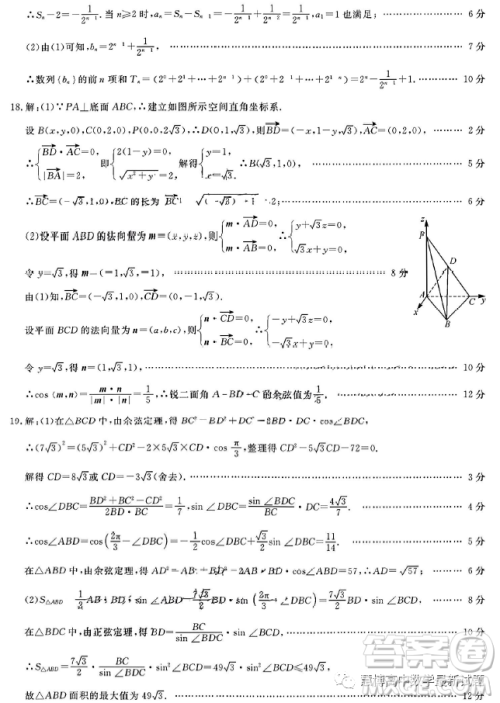 ∴Sₙ−2=−1/2ⁿ⁻¹. 当 n≥2 时, aₙ=Sₙ−Sₙ₋₁=−1/2ⁿ⁻¹+, a₁=1 也满足; 6 分
(2)由(1)可知, bₙ=2ⁿ⁻¹+1/2ⁿ⁻¹, 7 分
∴数列{bₙ}的前 n 项和 Tₙ=(2⁰+2¹+…+2ⁿ⁻¹)+(2⁰+2¹+…+2ⁿ⁻¹)+1. 10 分
18.解:(1)∵PA⊥底面 ABC, ∴建立如图所示空间直角坐标系.
设 B(x,y,0),C(0,2,0),P(0,0,2√3),∴D(0,1,√3),则BD=(−x,1−y,√3),AC=(0,2,0), 2 分
∴{BD·AC=0, |BA|=2, 即{2(1−y)=0, √x²+y²=2, 解得{y=1, ∴B(√3,1,0), 5 分
∴BC=(−√3,1,0),BC的长为 6 分
(2)设平面 ABD 的法向量为 m=(x,y,z),则{m·AD=0, m·BD=0, ∴{y+√3z=0, −√3x+√3z=0,
令 y=√3,得 m=(1,√3,1), 8 分
由(1)知,BC=(−√3,1,0),CD=(0,−1,√3),
设平面 BCD 的法向量为 n=(a,b,c),则{n·CD=0, n·BC=0, ∴{−y+√3z=0, −√3x+y=0,
令 y=√3,得 n=(1,√3,1), 10 分
∴cos⟨m,n⟩=m·n/|m|·|n|=1/5, ∴锐二面角 A−BD−C 的余弦值为1/5. 12 分
z
P
D
A
C
y
x
B
19.解:(1)在△BCD 中,由余弦定理,得 BC²=BD²+DC²−2BD·DC·cos∠BDC,
∴(7√3)²=(5√3)²+CD²−2×5√3×CD·cos π/3,整理得 CD²−5√3CD−72=0.
解得 CD=8√3或−3√3(舍去). 3 分
∴cos∠DBC=BD²+BC²−CD²/2BD·BC=1/7,sin∠DBC=sin∠BDC/BC·DC=4√3/7. 4 分
∴cos∠ABD=cos(2π/3−∠DBC)=−1/2cos∠DBC+√3/2sin∠DBC=11/14.
在△ABD 中,由余弦定理,得 AD²=AB²+BD² ∴AD=√57; 6 分
(2)S△ABD=1/2AB·BD·sin∠ABD=7√3/2·BD·sin(2π/3−∠DBC)= 8 分
在△BDC 中,由正弦定理,得 BD=BC/sin∠BDC 10 分
∴S△ABD=7√3/2·BC/·sin²∠BCD=49√3·sin²∠BCD≤49√3.
故△ABD 面积的最大值为 49√3. 12 分
高中数学最新试题